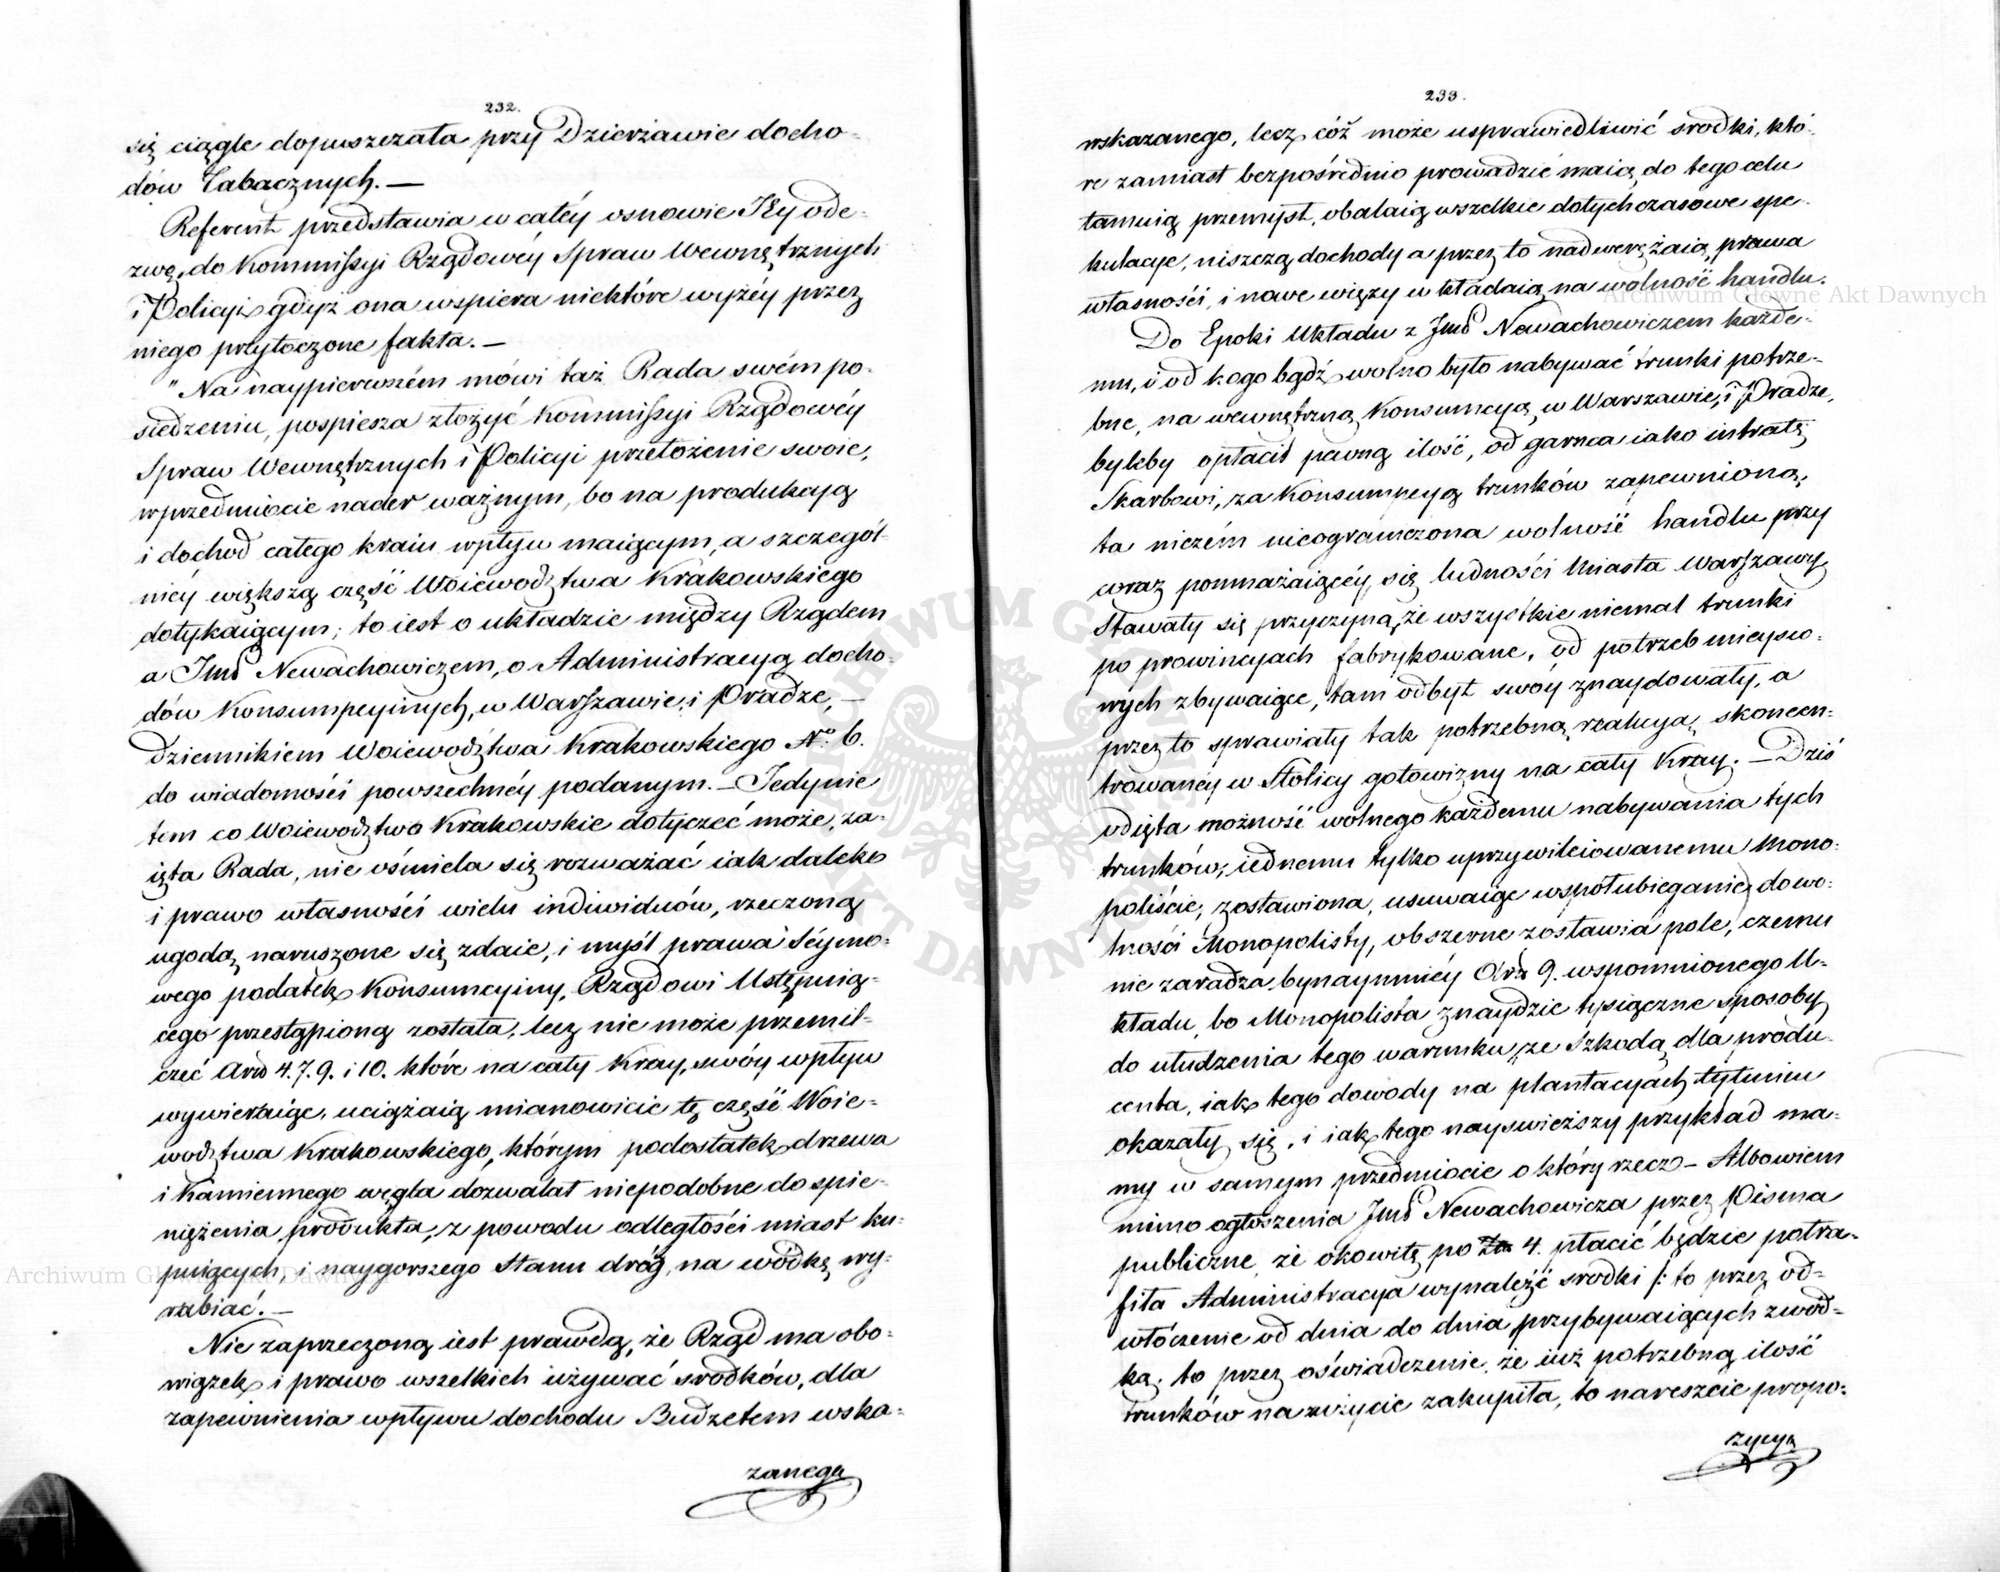 232.
się ciągle dopuszczała przy Dzierżawie docho-
dów Tabacznych. —
Referent przedstawia w całéy osnowie Jéy ode-
zwę, do Kommissyi Rządowéy Spraw Wewnętrznych
i Policyi gdyż ona wspiera niektóre wyżéy przez
niego przytoczone fakta. —
"Na naypierwszém mówi taż Rada swém po-
siedzeniu, pospiesza złożyć Kommissyi Rządowéy
Spraw Wewnętrznych i Policyi przełożenie swoie,
w przedmiocie nader ważnym, bo na produkcyą
i dochod całego kraiu wpływ maiącym, a szczegól-
niéy większą część Woiewodztwa Krakowskiego
dotykaiącym; to iest o układzie między Rządem
a Jmć Newachowiczem, o Administracyą docho-
dów Konsumpcyinych, w Warszawie i Pradze, —
dziennikiem Woiewodztwa Krakowskiego No. 6.
do wiadomości powszechnéy podanym. — Jedynie
tem co Woiewodztwo Krakowskie dotyczeć może, za-
ięta Rada, nie ośmiela się rozważać iak daleko
i prawo własności wielu indiwiduów, rzeczoną
ugodą naruszone się zdaie, i myśl prawa Séymo-
wego podatek Konsumcyiny, Rządowi Ustępuią-
cego przestąpioną została, lecz nie może przemil-
czeć Artw 4. 7. 9. i 10. które na cały Kray, swóy wpływ
wywieraiąc, uciążaią mianowicie tę część Woie-
wodztwa Krakowskiego, którym podostatek drzewa
i Kamiennego węgla dozwalał niepodobne do spie-
niężenia produkta, z powodu odległości miast ku-
puiących, i naygorszego Stanu dróg, na wódkę wy-
rabiać. —
Nie zaprzeczoną iest prawdą, że Rząd ma obo-
wiązek i prawo wszelkich używać srodków, dla
zapewnienia wpływu dochodu Budżetem wska-
zanego
233.
wskazanego, lecz cóż może usprawiedliwić srodki, któ-
re zamiast bezpośrednio prowadzić maią do tego celu
tamuią przemysł, obalaią wszelkie dotychczasowe spe-
kulacye, niszczą dochody a przez to nadwerężaią prawa
własności, i nowe więzy wkładaią na wolność handlu.
Do Epoki Układu z Jmć Newachowiczem każde-
mu, i od kogo bądź wolno było nabywać trunki potrze-
bne, na wewnętrzną Konsumcyą w Warszawie i Pradze,
byleby opłacił pewną ilość, od garnca iako intratę
Skarbowi, za Konsumpcyą trunków zapewnioną,
ta niczém nieograniczona wolność handlu przy
coraz pomnażaiącéy się ludności Miasta Warszawy
Stawały się przyczyną, że wszystkie niemal trunki
po prowincyach fabrykowane, od potrzeb mieysco-
wych zbywaiące, tam odbyt swóy znaydowały, a
przez to sprawiały tak potrzebną realucyą skoncen-
trowanéy w Stolicy gotowizny na cały Kray. — Dziś
odięta możność wolnego każdemu nabywania tych
trunków, iednemu tylko uprzywileiowanemu Mono-
poliście, zostawiona, usuwaiąc wspołubieganie, dowo-
lności Monopolisty, obszerne zostawia pole, czemu
nie zaradza bynaymniéy Art 9. wspomnionego U-
kładu, bo Monopolista znaydzie tysiączne sposoby
do ułudzenia tego warunku, ze Szkodą dla produ-
centa, iak tego dowody na plantacyach tytuniu
okazały się, i iak tego nayswieższy przykład ma-
my w samym przedmiocie o który rzecz — Albowiem
mimo ogłoszenia Jmć Newachowicza przez Pisma
publiczne, że okowitę po Zł 4. płacić będzie potra-
fiła Administracya wynaleźć srodki /: to przez od-
włóczenie od dnia do dnia, przybywaiących z wód-
ką, to przez oświadczenie, że iuż potrzebną ilość
trunków na zużycie zakupiła, to nareszcie propo-
zycyą
Archiwum Główne Akt Dawnych
Archiwum Główne Akt Dawnych
ARCHIWUM GŁÓWNE AKT DAWNYCH